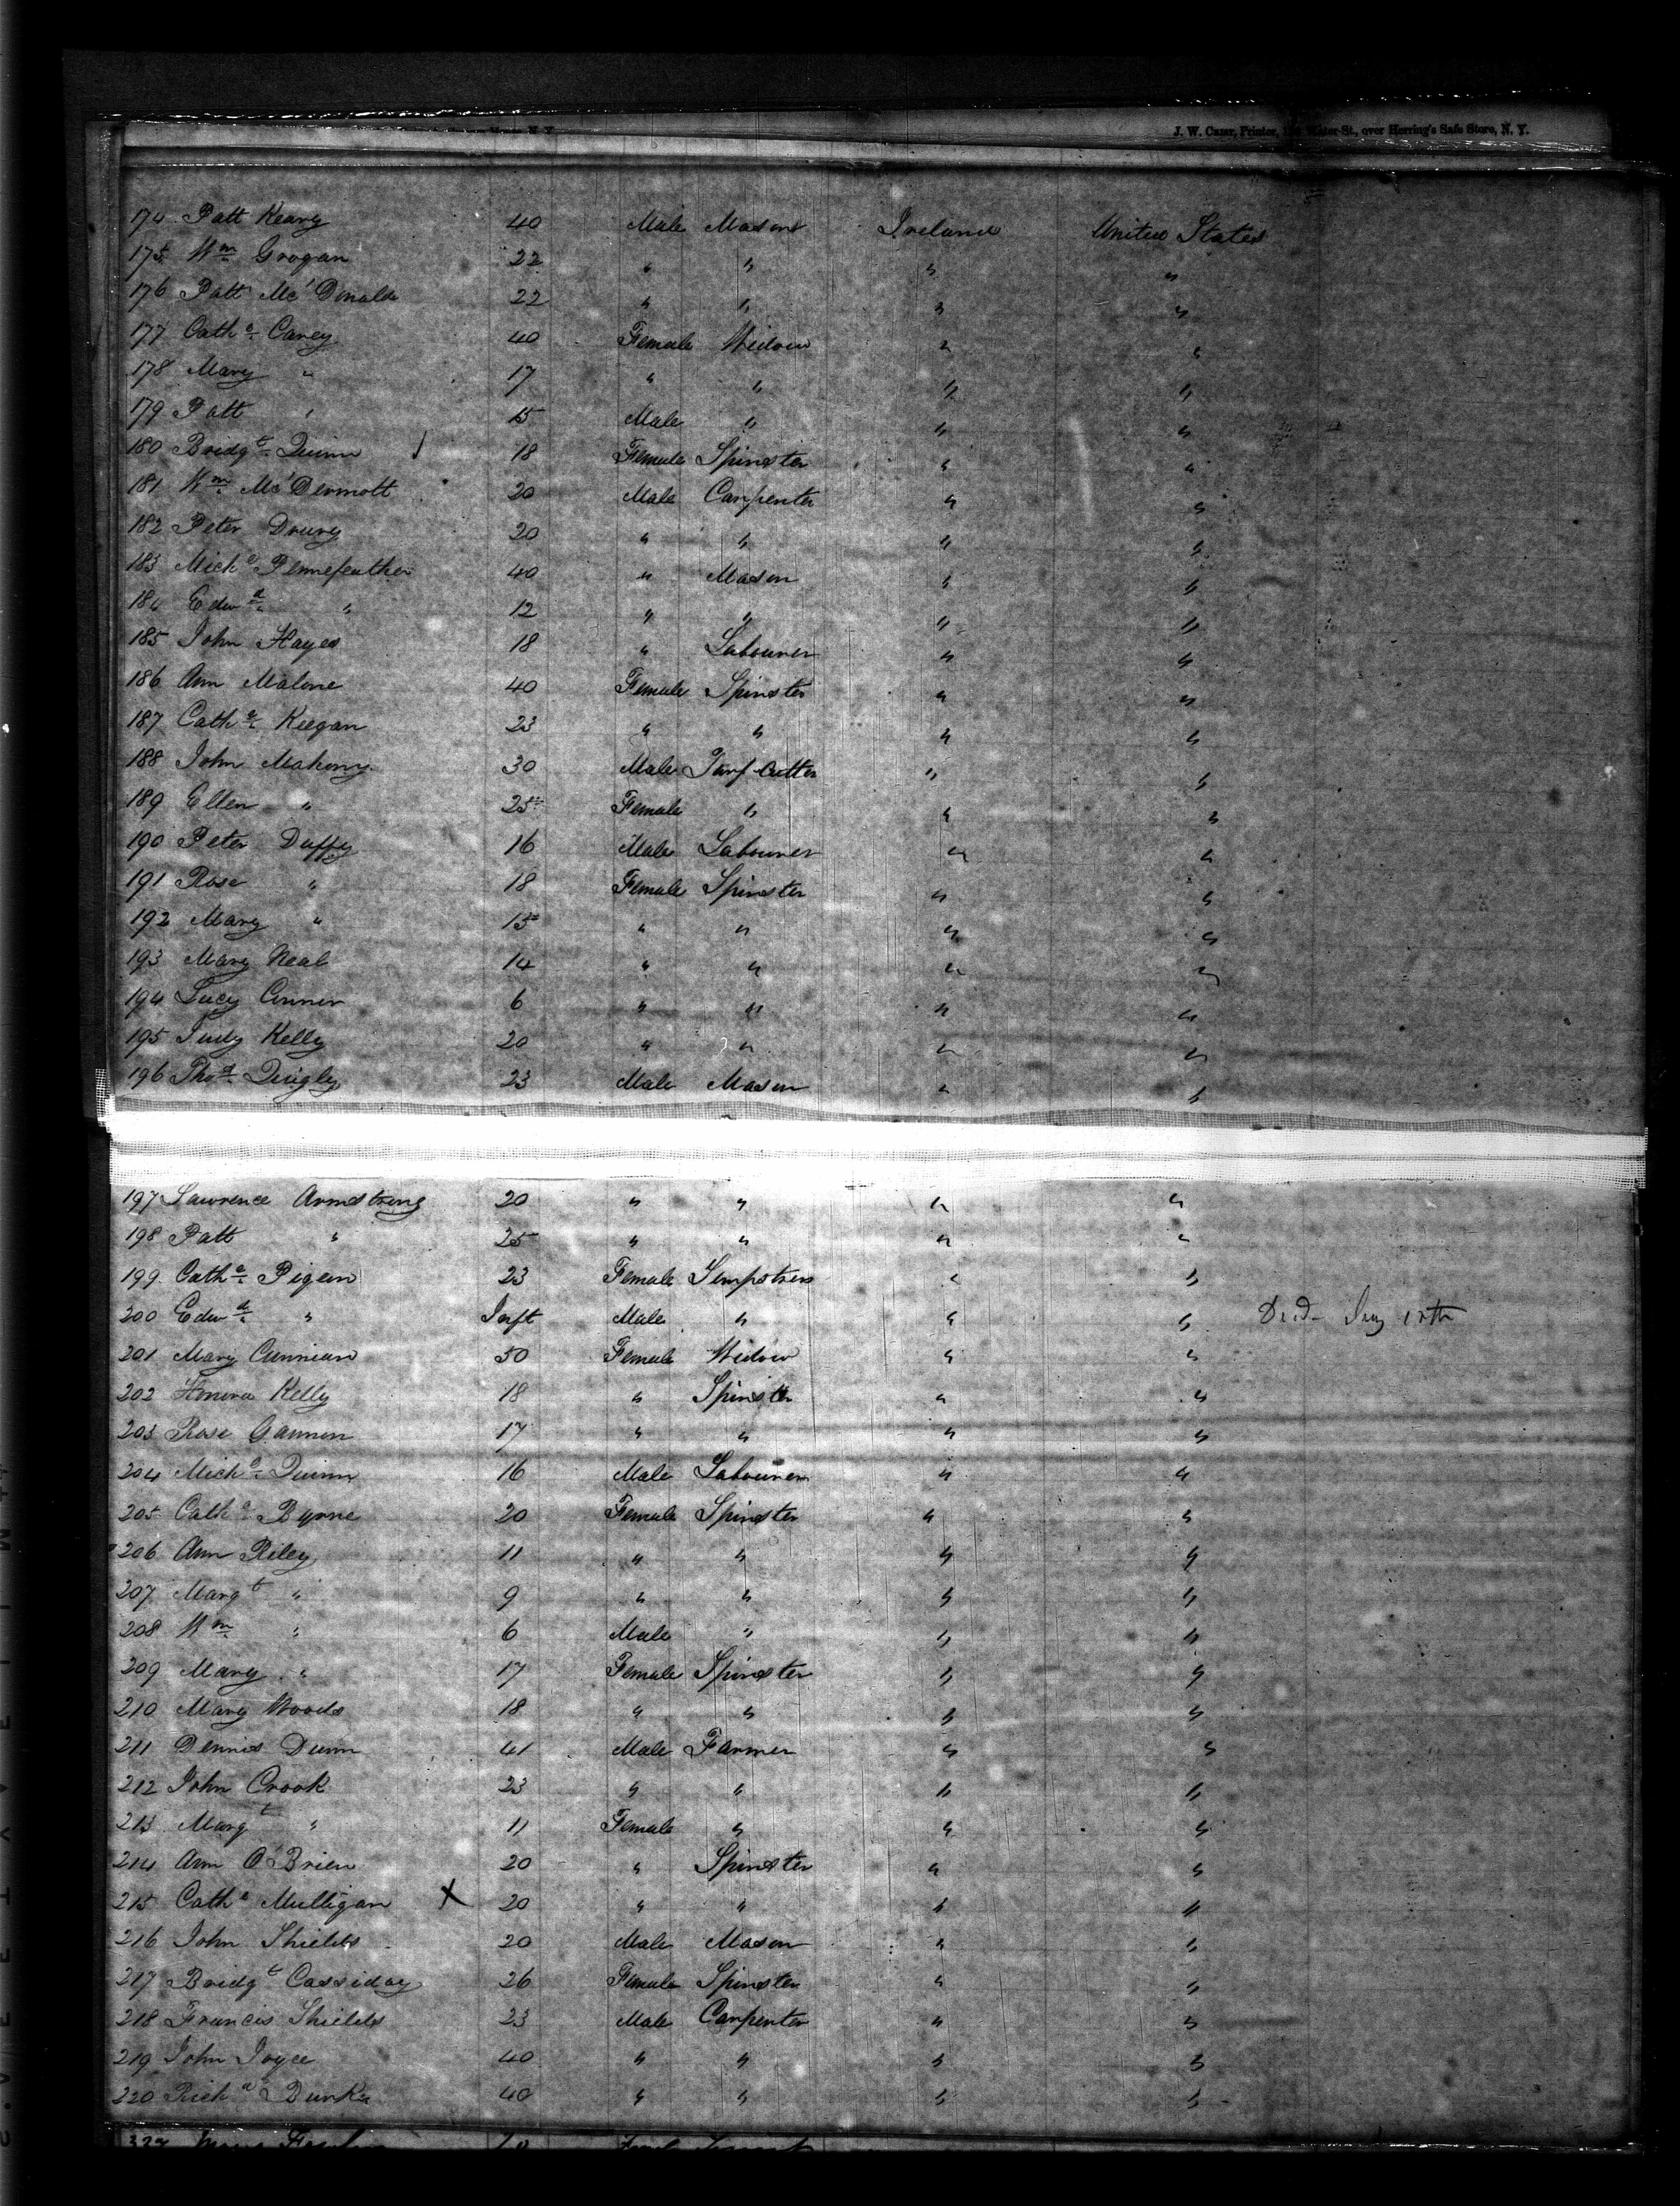 J. W. Carr, Printer, Water-St., over Herring's Safe Store, N. Y.
174 Patt Keary 40 Male Mason Ireland United States
175 Wm Grogan 22 " " " "
176 Patt Mc'Donald 22 " " " "
177 Cathe Carey 40 Female Widow " "
178 Mary " 17 " " " "
179 Patt " 15 Male " " "
180 Bridgt Quinn 18 Female Spinster " "
181 Wm Mc'Dermott 20 Male Carpenter " "
182 Peter Drury 20 " " " "
183 Michl Pennefeather 40 " Mason " "
184 Edwd " 12 " " " "
185 John Hayes 18 " Labourer " "
186 Ann Malone 40 Female Spinster " "
187 Cathe Keegan 23 " " " "
188 John Mahony 30 Male Turf Cutter " "
189 Ellen " 25 Female " " "
190 Peter Duffy 16 Male Labourer " "
191 Rose " 18 Female Spinster " "
192 Mary " 15 " " " "
193 Mary Neal 14 " " " "
194 Lucy Connor 6 " " " "
195 Judy Kelly 20 " " " "
196 Thos Quigly 23 Male Mason " "
197 Lawrence Armstrong 20 " " " "
198 Patt " 25 " " " "
199 Cathe Pigeon 23 Female Sempstress " "
200 Edwd " Inft Male " " " Died 12th
201 Mary Cunnian 50 Female Widow " "
202 Honora Kelly 18 " Spinster " "
203 Rose Gannon 17 " " " "
204 Michl Quinn 16 Male Labourer " "
205 Cathe Byrne 20 Female Spinster " "
206 Ann Riley 11 " " " "
207 Margt " 9 " " " "
208 Wm " 6 Male " " "
209 Mary " 17 Female Spinster " "
210 Mary Woods 18 " " " "
211 Dennis Dunn 41 Male Farmer " "
212 John Crook 23 " " " "
213 Margt " 11 Female " " "
214 Ann O'Brien 20 " Spinster " "
215 Cathe Mulligan X 20 " " " "
216 John Shields 20 Male Mason " "
217 Bridgt Cassiday 26 Female Spinster " "
218 Francis Shields 23 Male Carpenter " "
219 John Joyce 40 " " " "
220 Richd Burke 40 " " " "